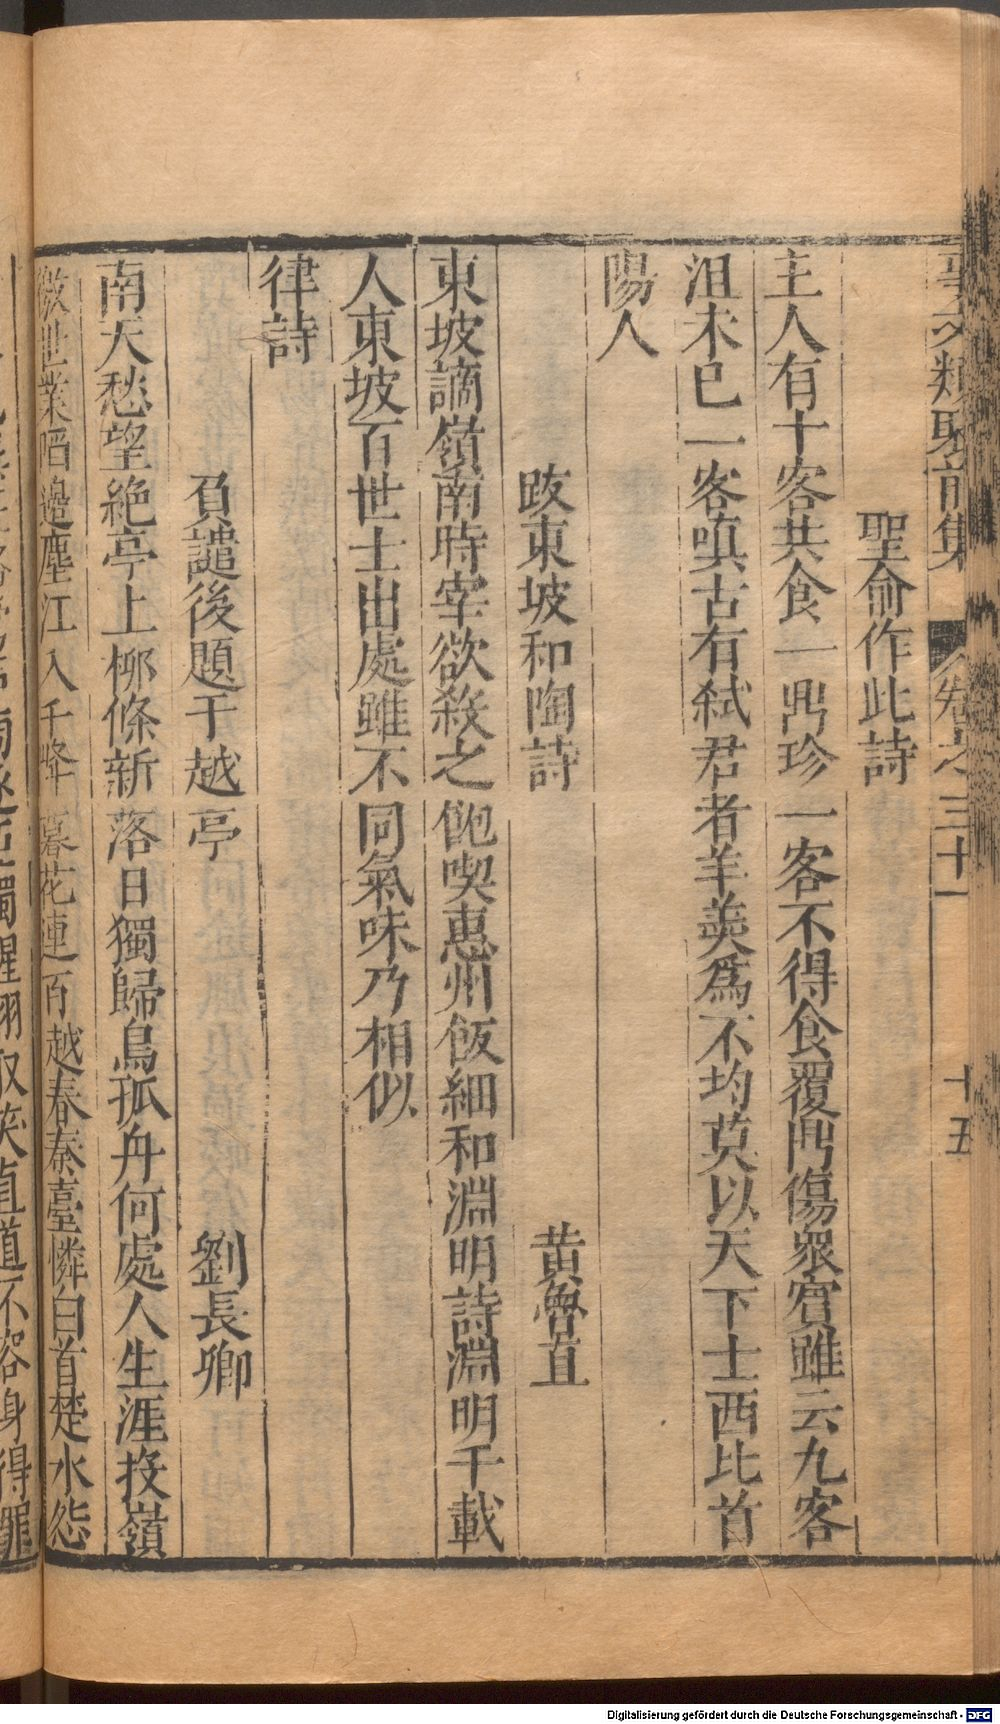 事文類聚前集 卷之三十一 十五
聖俞作此詩
主人有十客共食一鼎珍一客不得食覆鼎傷衆賔雖云九客
沮未已一客嗔古有弑君者羊羹爲不均莫以天下士西比首
陽人
跋東坡和陶詩 黄魯直
東坡謫嶺南時宰欲殺之飽喫惠州飯細和淵明詩淵明千載
人東坡百世士出處雖不同氣味乃相似
律詩
負譴後題于越亭 劉長卿
南天愁望絶亭上桞條新落日獨歸鳥孤舟何處人生涯投嶺
徼世業陷邊塵江入千峰暮花連百越春秦臺憐白首楚水怨
直道不容身得罪
Digitalisierung gefördert durch die Deutsche Forschungsgemeinschaft - DFG